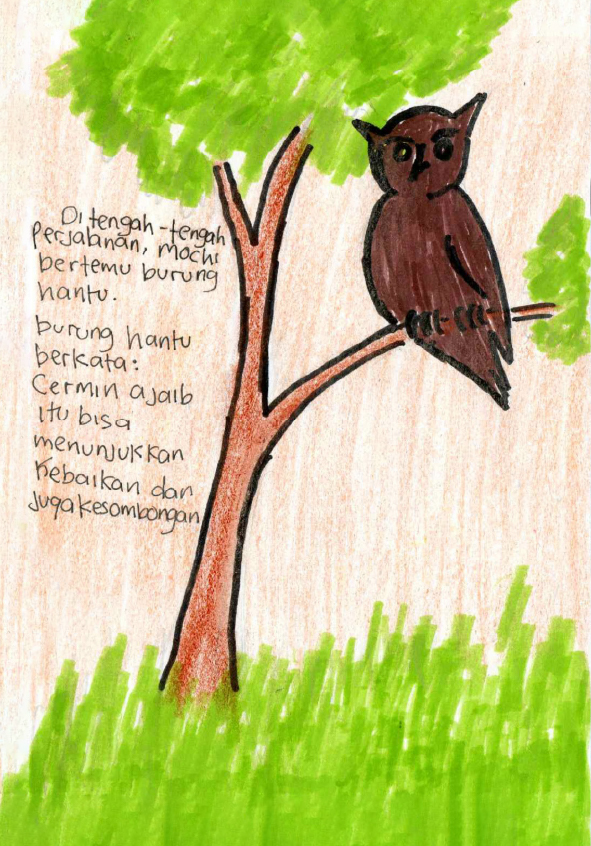 Di tengah-tengah
perjalanan, mochi
bertemu burung
hantu.
burung hantu
berkata:
Cermin ajaib
itu bisa
menunjukkan
kebaikan dan
juga kesombongan